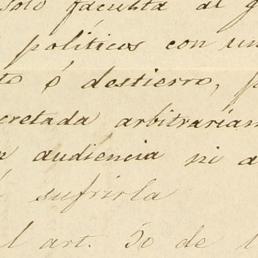 solo faculta al g
políticos con un
to ó destierro, p
cretada arbitrariam
n audiencia ni a
sufrirla
l art. 50 de l